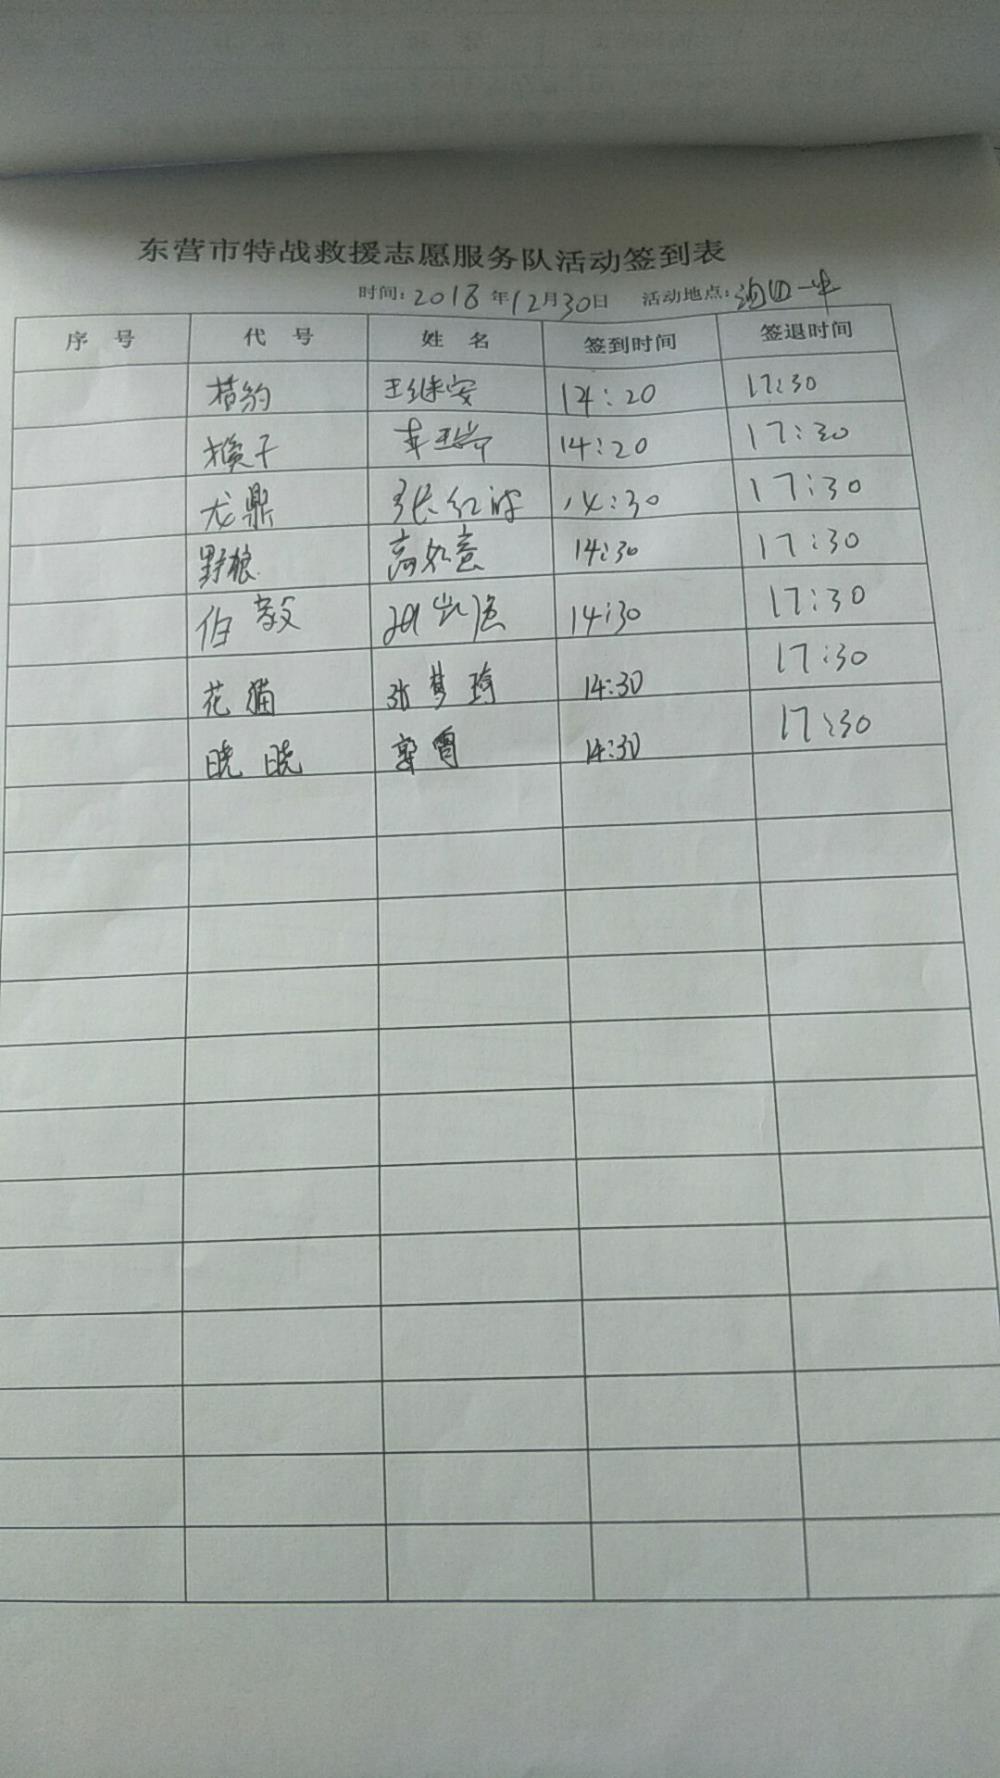 东营市特战救援志愿服务队活动签到表
时间: 2018 年 12 月 30 日 活动地点:
序 号 代 号 姓 名 签到时间 签退时间
猎豹 王继安 14:20 17:30
猴子 14:20 17:30
龙鼎 张红波 14:30 17:30
野狼 高如意 14:30 17:30
伯毅 14:30 17:30
花猫 张梦琦 14:30 17:30
晓晓 14:30 17:30